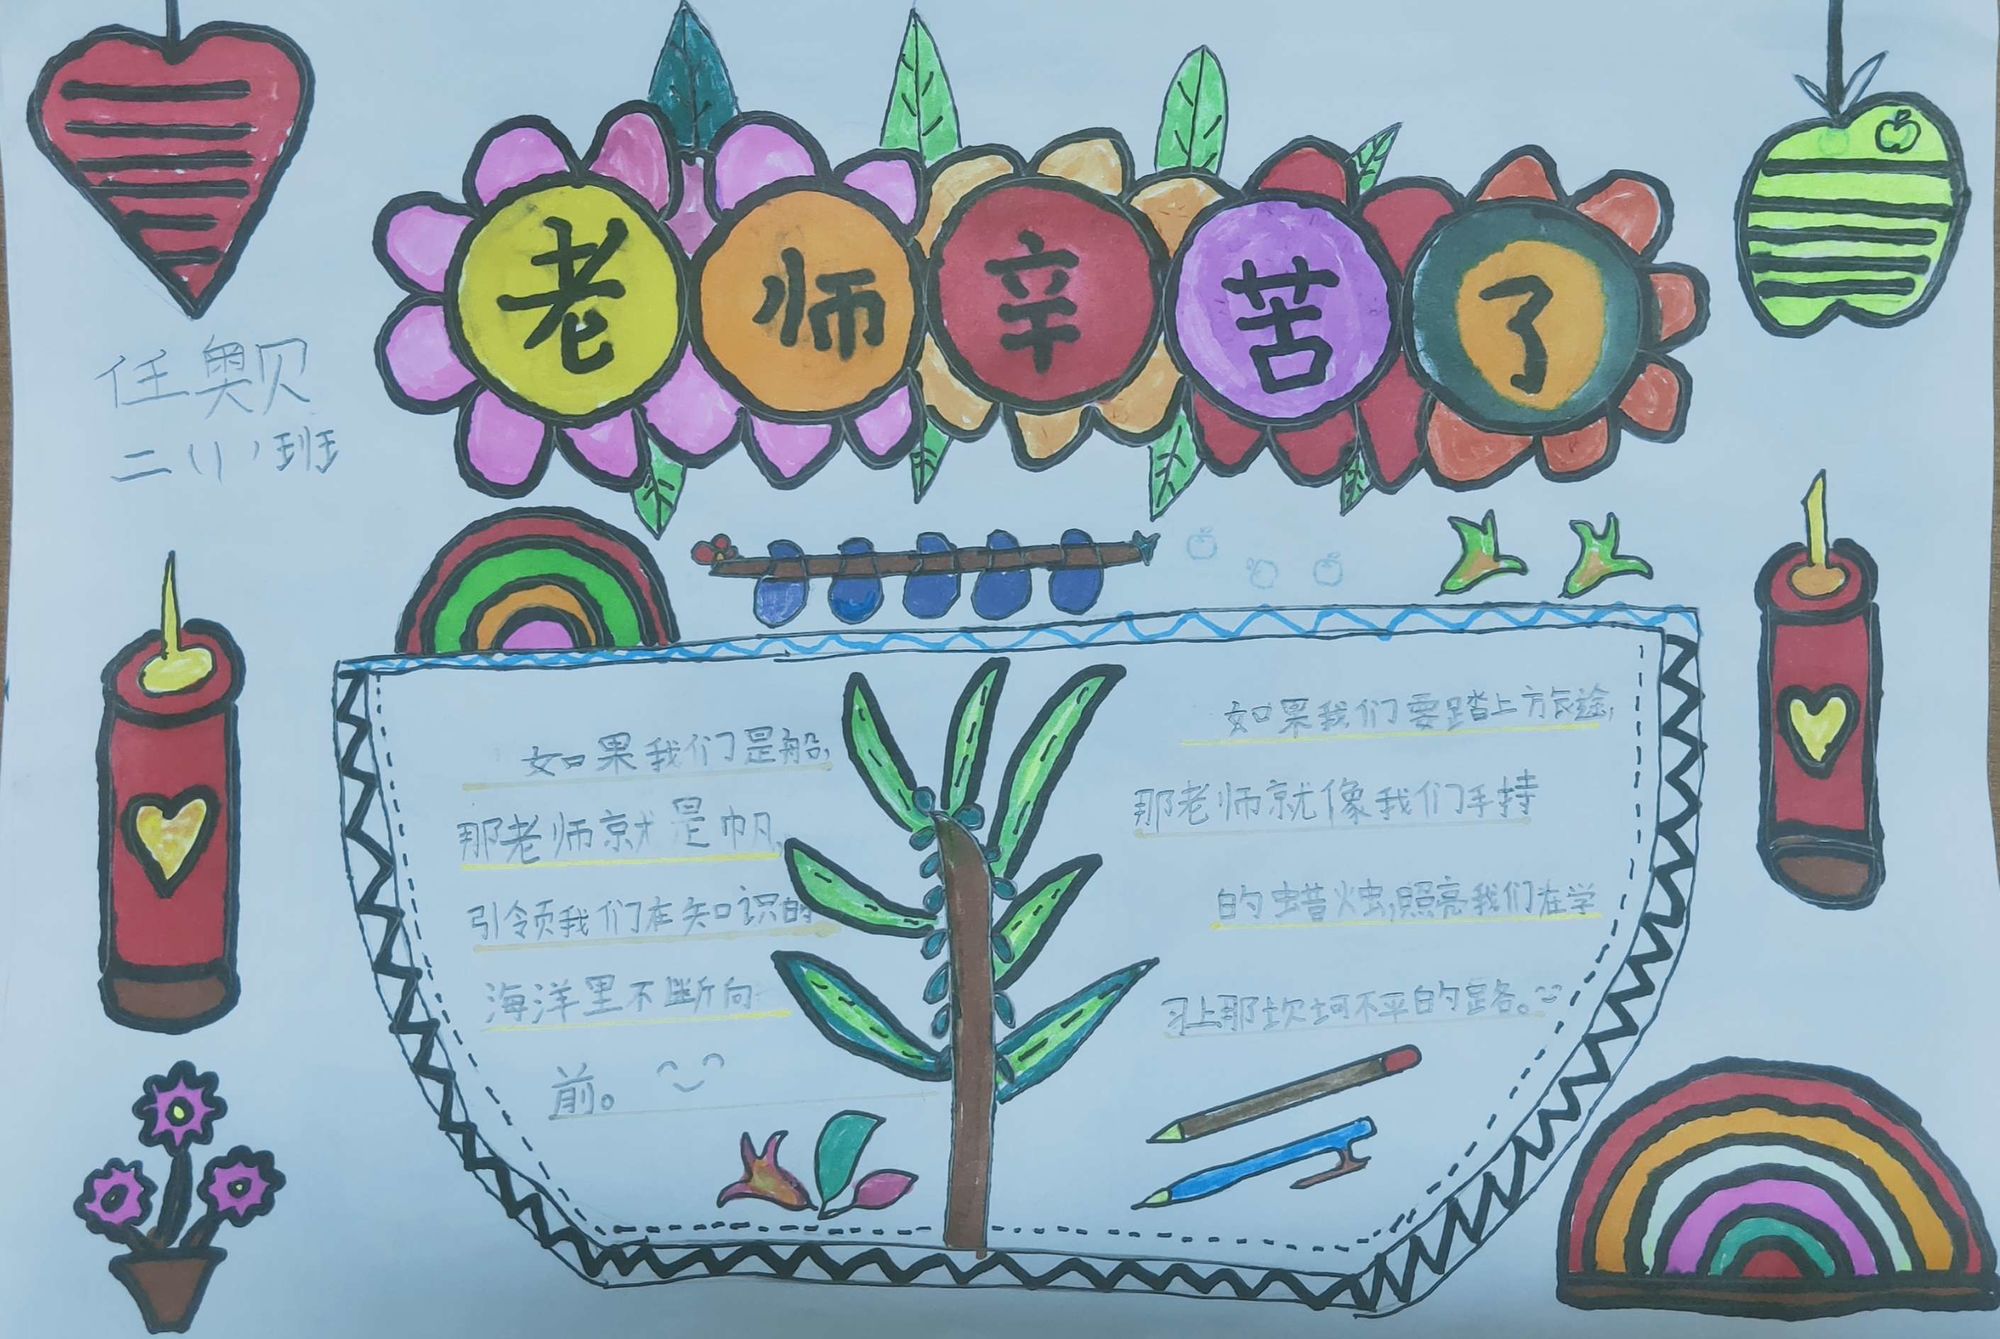 老师辛苦了
任奥贝
二(1)班
如果我们是船,
那老师就是帆,
引领我们在知识的
海洋里不断向
前。
如果我们要踏上方旅途,
那老师就像我们手持
的蜡烛,照亮我们在学
习上那坎坷不平的路。